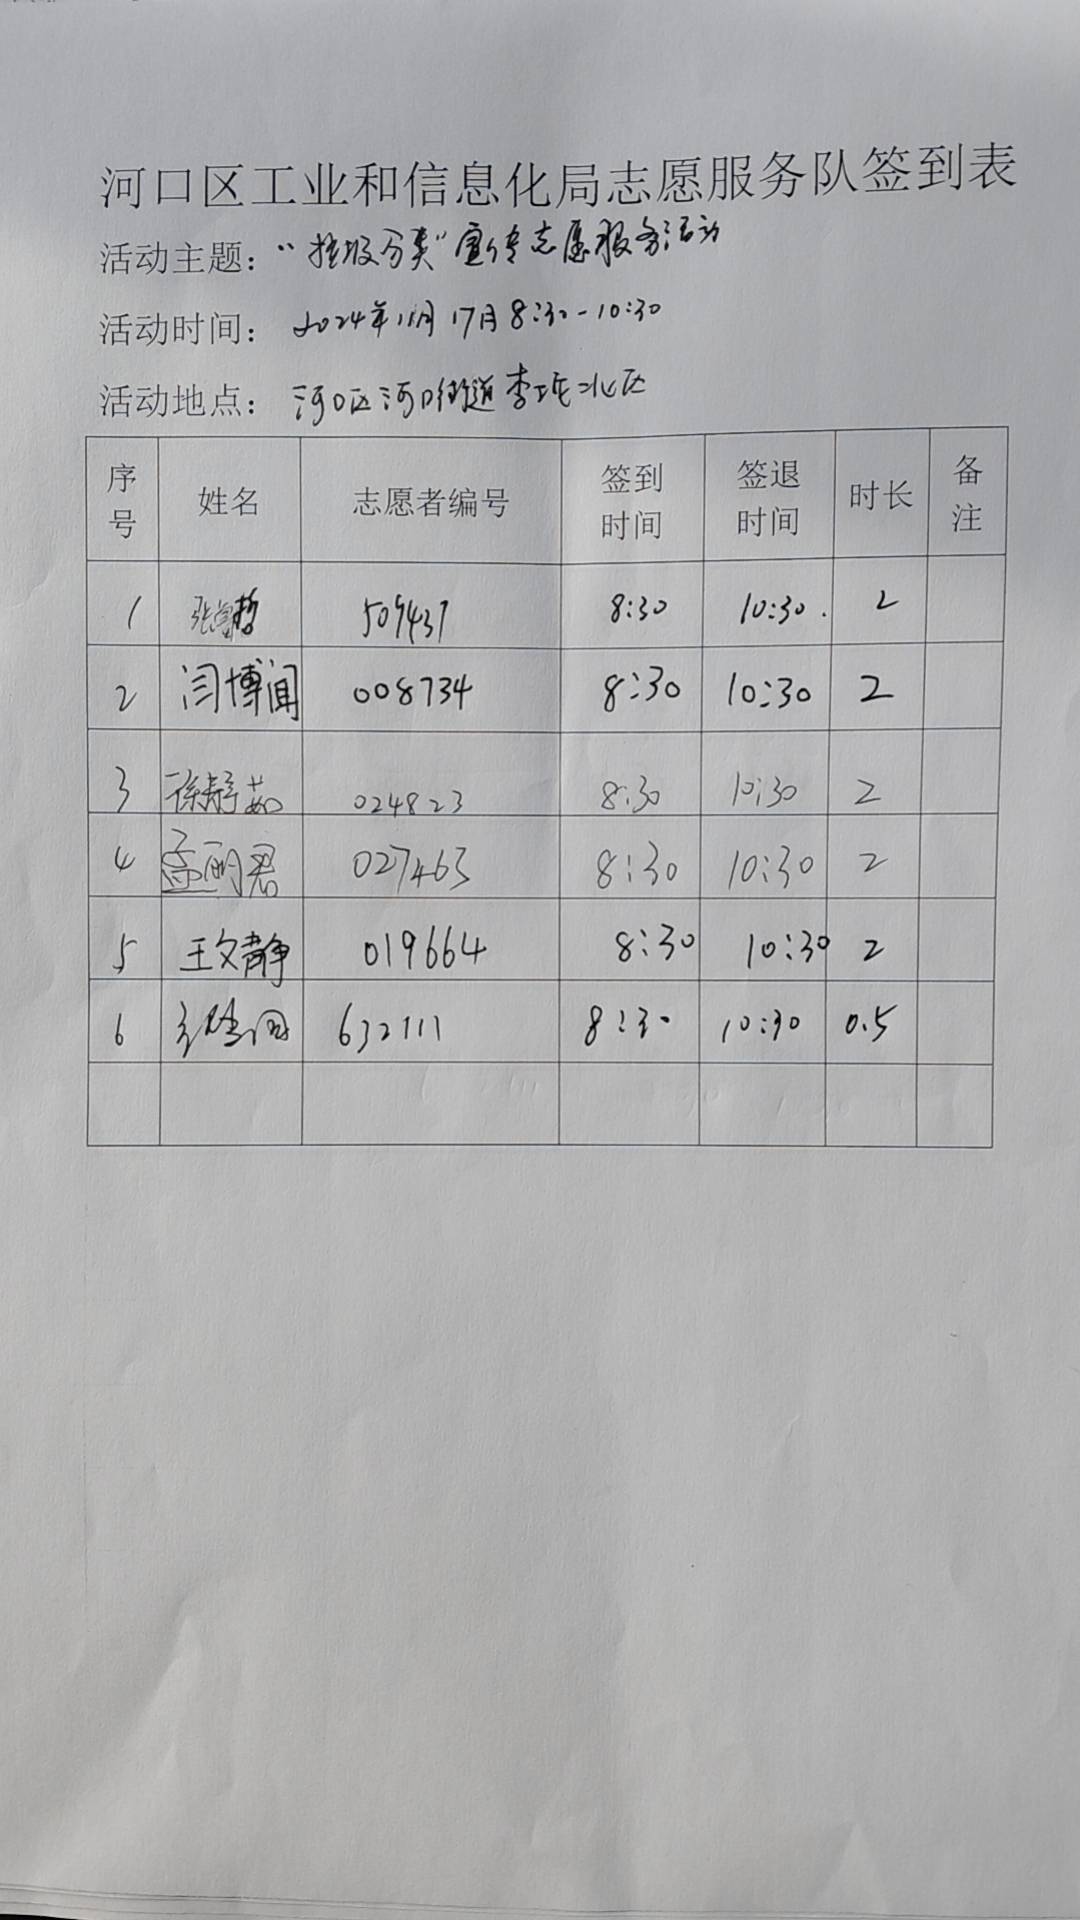 河口区工业和信息化局志愿服务队签到表
活动主题：“垃圾分类”宣传志愿服务活动
活动时间：2024年11月17月8:30-10:30
活动地点：河口区河口街道李坨北区
序号 姓名 志愿者编号 签到时间 签退时间 时长 备注
1 张 哲 509437 8:30 10:30. 2
2 闫博闻 008734 8:30 10:30 2
3 徐静茹 024823 8:30 10:30 2
4 孟丽君 027463 8:30 10:30 2
5 王文静 019664 8:30 10:30 2
6 632111 8:30 10:30 0.5